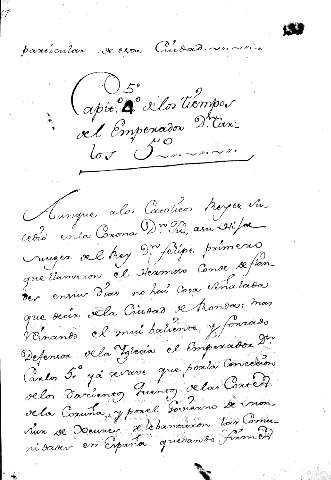 particular de esta Ciudad
5º
Capit.º 4º de los tiempos
del Emperador Dn Car-
los 5º
Aunque, a los Catolicos Reyes Su-
cedió en la Corona Dª su Hija
Muger del Rey Dn felipe, primero
que llamaron el Hermoso Conde de flan-
des en sus dias no hai cosa señalada
que decir de la Ciudad de Ronda: mas
Reinando el mui baliente, y
Defensor de la Yglesia el Emperador Dn
Carlos 5º ya se save que por la Concesion
de los Docientos quentos de las Cortes
de la Coruña, y por el Govierno de mon-
siur de Xeures se lebantaron las Comu-
nidades en España quedando firmes